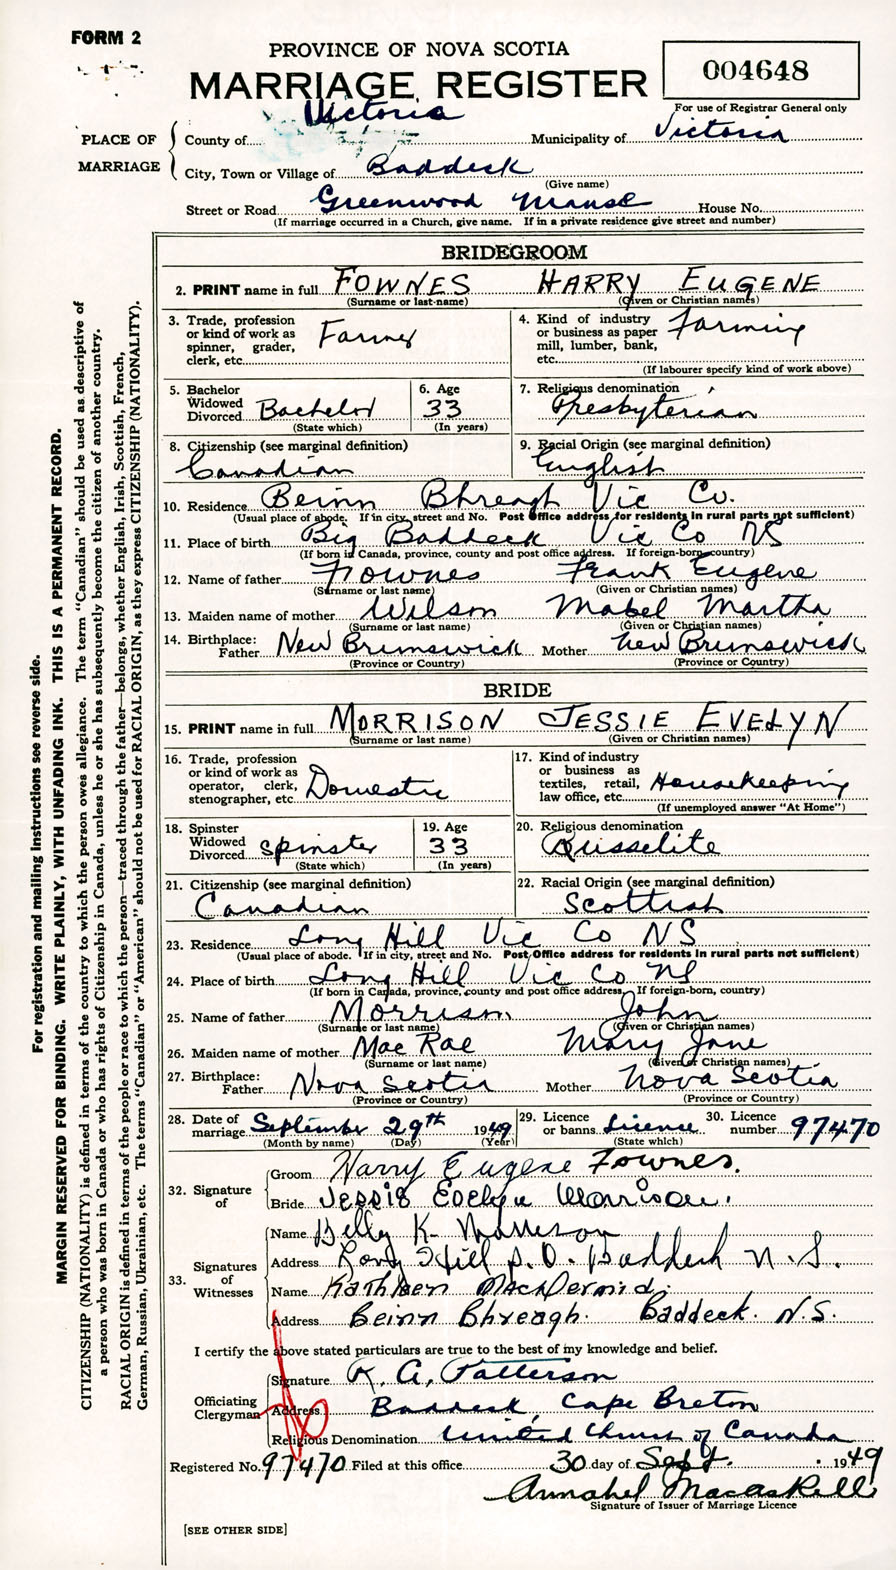 FORM 2
PROVINCE OF NOVA SCOTIA
MARRIAGE REGISTER
004648
For use of Registrar General only
PLACE OF MARRIAGE
County of Victoria Municipality of Victoria
City, Town or Village of Baddeck
(Give name)
Street or Road Greenwood Manse House No.
(If marriage occurred in a Church, give name. If in a private residence give street and number)
BRIDEGROOM
2. PRINT name in full FOWNES HARRY EUGENE
(Surname or last name) (Given or Christian names)
3. Trade, profession or kind of work as spinner, grader, clerk, etc. Farmer
4. Kind of industry or business as paper mill, lumber, bank, etc. Farming
(If labourer specify kind of work above)
5. Bachelor Widowed Divorced Bachelor
(State which)
6. Age 33
(In years)
7. Religious denomination Presbyterian
8. Citizenship (see marginal definition) Canadian
9. Racial Origin (see marginal definition) English
10. Residence Beinn Bhreagh Vic Co.
(Usual place of abode. If in city, street and No. Post Office address for residents in rural parts not sufficient)
11. Place of birth Big Baddeck Vic Co NS
(If born in Canada, province, county and post office address. If foreign-born, country)
12. Name of father Fownes Frank Eugene
(Surname or last name) (Given or Christian names)
13. Maiden name of mother Wilson Mabel Martha
(Surname or last name) (Given or Christian names)
14. Birthplace: Father New Brunswick Mother New Brunswick
(Province or Country) (Province or Country)
BRIDE
15. PRINT name in full MORRISON JESSIE EVELYN
(Surname or last name) (Given or Christian names)
16. Trade, profession or kind of work as operator, clerk, stenographer, etc. Domestic
17. Kind of industry or business as textiles, retail, law office, etc. Housekeeping
(If unemployed answer "At Home")
18. Spinster Widowed Divorced Spinster
(State which)
19. Age 33
(In years)
20. Religious denomination Russelite
21. Citizenship (see marginal definition) Canadian
22. Racial Origin (see marginal definition) Scottish
23. Residence Long Hill Vic Co NS
(Usual place of abode. If in city, street and No. Post Office address for residents in rural parts not sufficient)
24. Place of birth Long Hill Vic Co NS
(If born in Canada, province, county and post office address. If foreign-born, country)
25. Name of father Morrison John
(Surname or last name) (Given or Christian names)
26. Maiden name of mother Mac Rae Mary Jane
(Surname or last name) (Given or Christian names)
27. Birthplace: Father Nova Scotia Mother Nova Scotia
(Province or Country) (Province or Country)
28. Date of marriage September 29th 1949
(Month by name) (Day) (Year)
29. Licence or banns Licence
(State which)
30. Licence number 97470
32. Signature of
Groom Harry Eugene Fownes.
Bride Jessie Evelyn Morrison.
33. Signatures of Witnesses
Name K. Morrison
Address Long Hill P.O. Baddeck N.S.
Name Kathleen MacDermid.
Address Beinn Bhreagh. Baddeck. N.S.
I certify the above stated particulars are true to the best of my knowledge and belief.
Officiating Clergyman
Signature K. A. Patterson
Address Baddeck, Cape Breton
Religious Denomination United Church of Canada
Registered No. 97470 Filed at this office 30 day of Sept. 1949
Annabel Macaskill
Signature of Issuer of Marriage Licence
[SEE OTHER SIDE]
For registration and mailing instructions see reverse side.
MARGIN RESERVED FOR BINDING. WRITE PLAINLY, WITH UNFADING INK. THIS IS A PERMANENT RECORD.
CITIZENSHIP (NATIONALITY) is defined in terms of the country to which the person owes allegiance. The term "Canadian" should be used as descriptive of
a person who was born in Canada or who has rights of Citizenship in Canada, unless he or she has subsequently become the citizen of another country.
RACIAL ORIGIN is defined in terms of the people or race to which the person—traced through the father—belongs, whether English, Irish, Scottish, French,
German, Russian, Ukrainian, etc. The terms "Canadian" or "American" should not be used for RACIAL ORIGIN, as they express CITIZENSHIP (NATIONALITY).